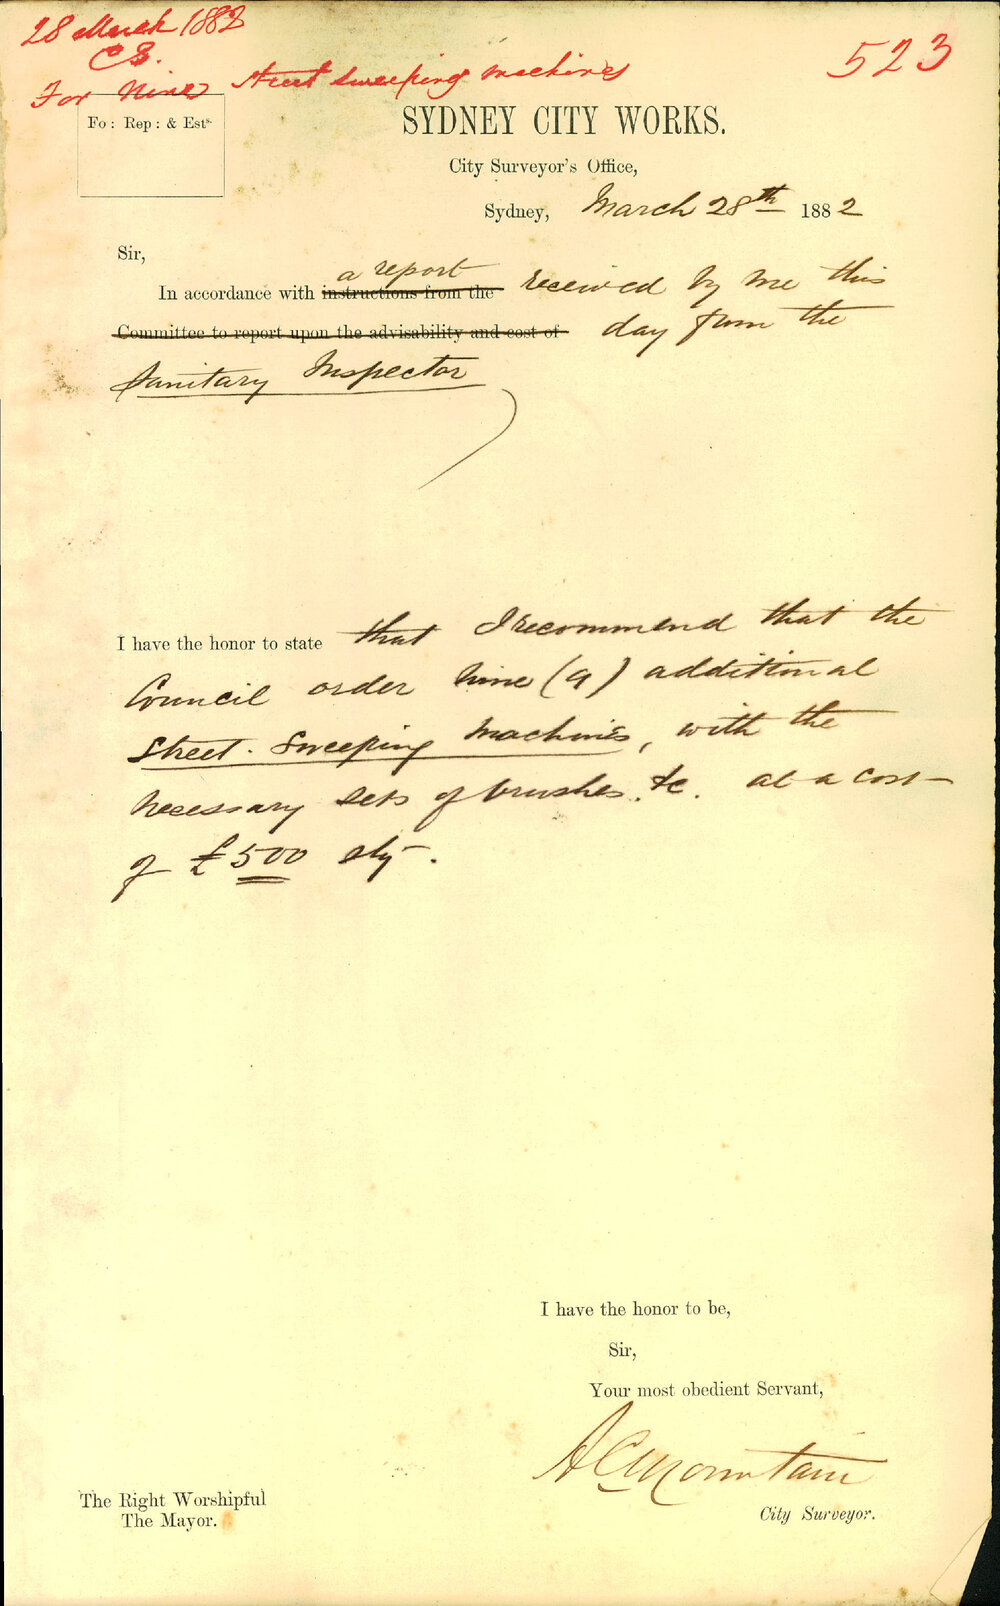 28 March 1882
C S.
For Nine Street Sweeping Machines
523
Fo: Rep: & Ests.
SYDNEY CITY WORKS.
City Surveyor's Office,
Sydney, March 28th 1882
Sir,
a report
In accordance with instructions from the received by me this
Committee to report upon the advisability and cost of day from the
Sanitary Inspector
I have the honor to state that I recommend that the
Council order nine (9) additional
Street-Sweeping Machines, with the
necessary sets of brushes &c. at a cost
of £500 stg.
I have the honor to be,
Sir,
Your most obedient Servant,
A C Mountain
City Surveyor.
The Right Worshipful
The Mayor.